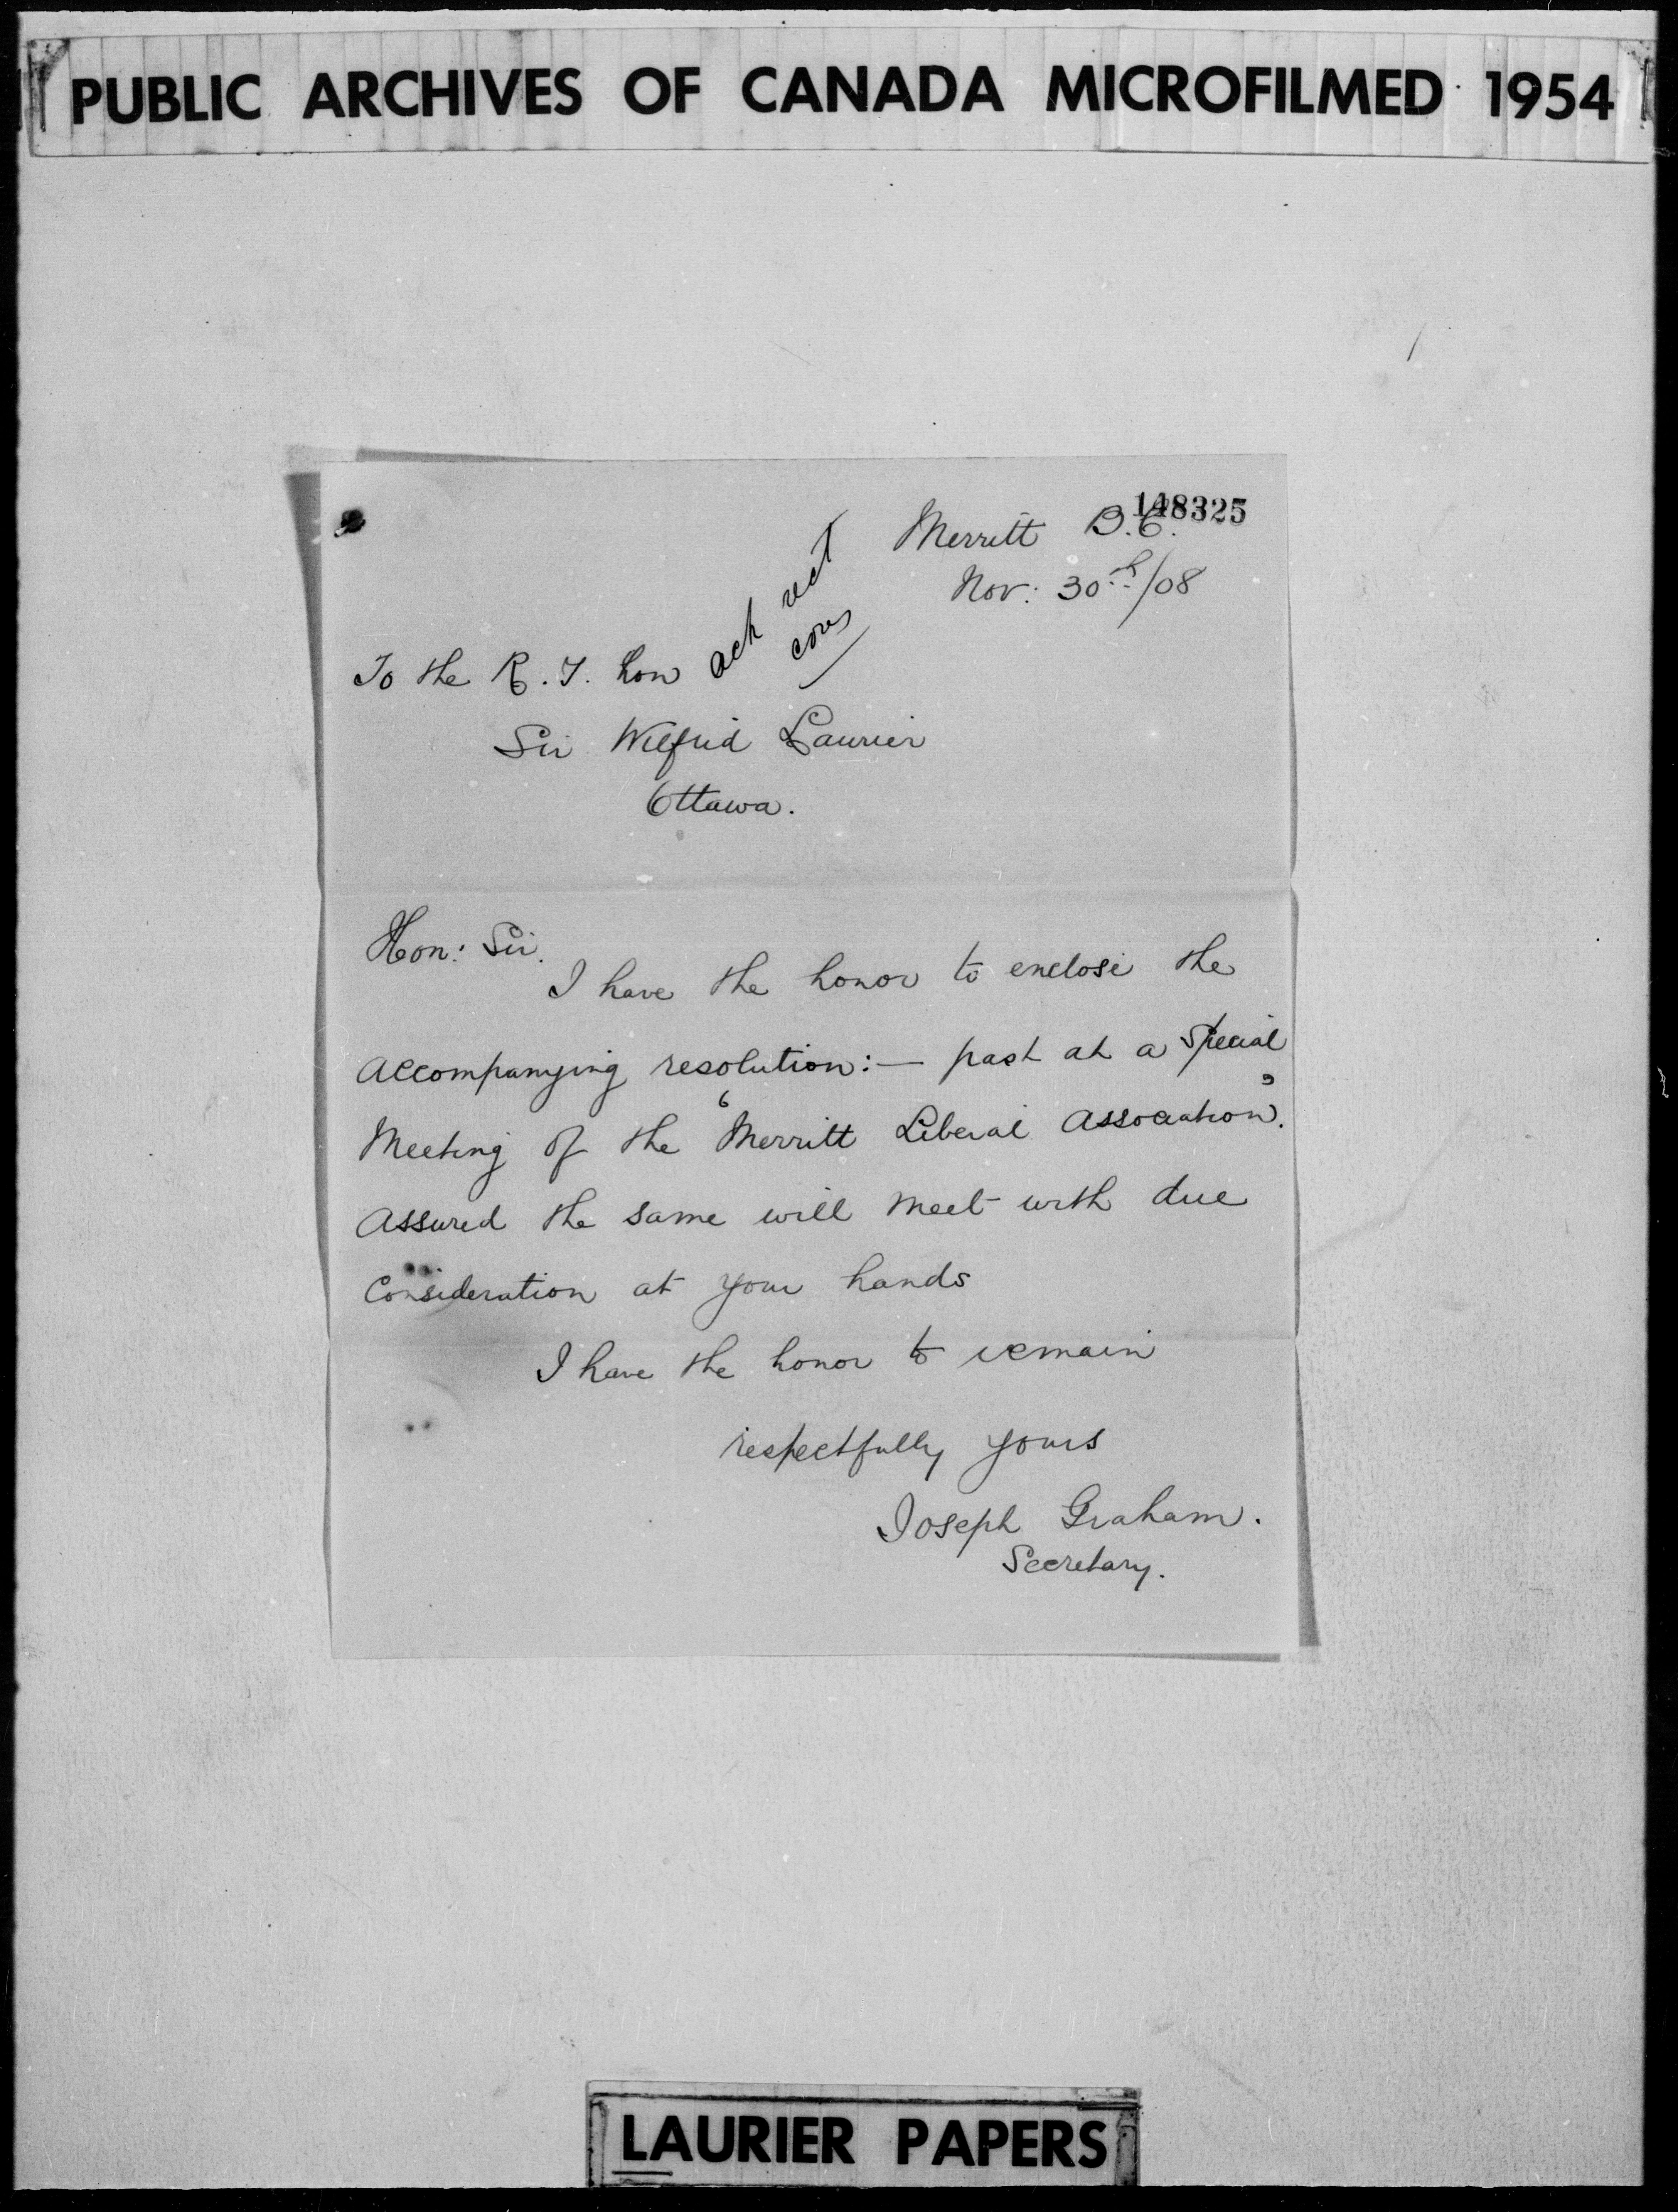 PUBLIC ARCHIVES OF CANADA MICROFILMED 1954
148325
Merritt B.C.
Nov: 30th/08
ack rect
To the R.T. hon
Sir Wilfrid Laurier
Ottawa.
Hon: Sir.
I have the honor to enclose the
accompanying resolution:— past at a special
Meeting of the 'Merritt Liberal Association'.
assured the same will meet with due
Consideration at your hands
I have the honor to remain
respectfully yours
Joseph Graham.
Secretary.
LAURIER PAPERS